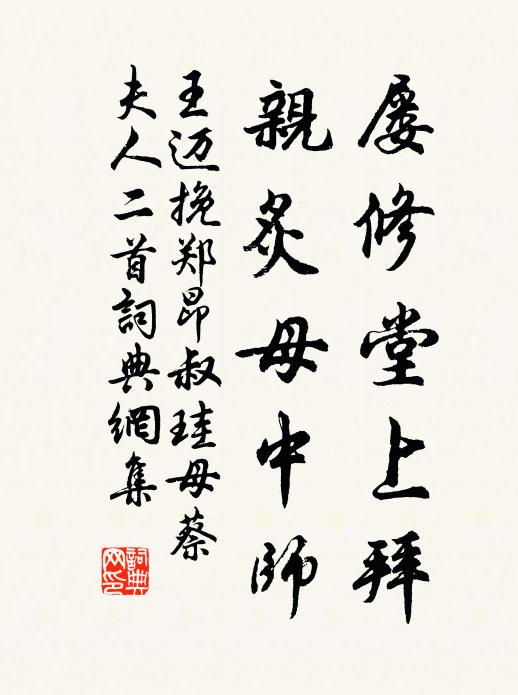 屡修堂上拜
親炙母中師
王迈挽郑昂叔珪母蔡
夫人二首詞典網集
詞典
网印